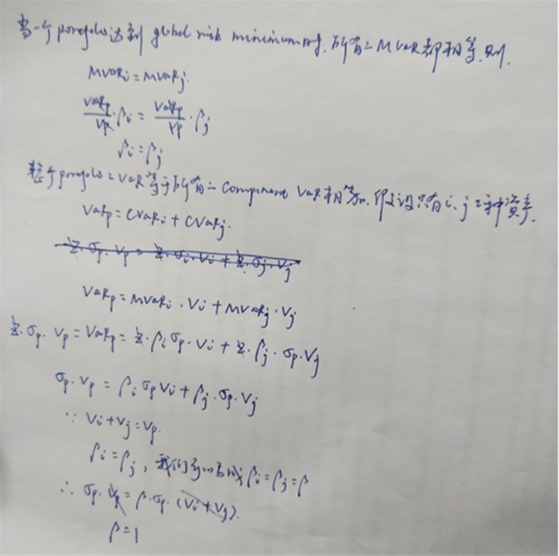 当一个porefolo达到 global risk minimum时,所有之MVaR都相等,则.
MVaRi = MVaRj.
VaRp/Vp · ρi = VaRp/Vp · ρj
ρi = ρj
整个porefolo之VaR等于所有之component VaR相等加,假设只有i、j 2种资产.
VaRp = CVaRi + CVaRj.
z·σp·Vp = z·σi·Vi + z·σj·Vj
VaRp = MVaRi · Vi + MVaRj · Vj
z·σp·Vp = VaRp = z·ρiσp·Vi + z·ρj·σp·Vj
σp·Vp = ρiσpVi + ρj·σp·Vj
∵ Vi + Vj = Vp.
ρi = ρj, 我们可以写成 ρi = ρj = ρ
∴ σp·Vp = ρ·σp·(Vi+Vj).
ρ = 1